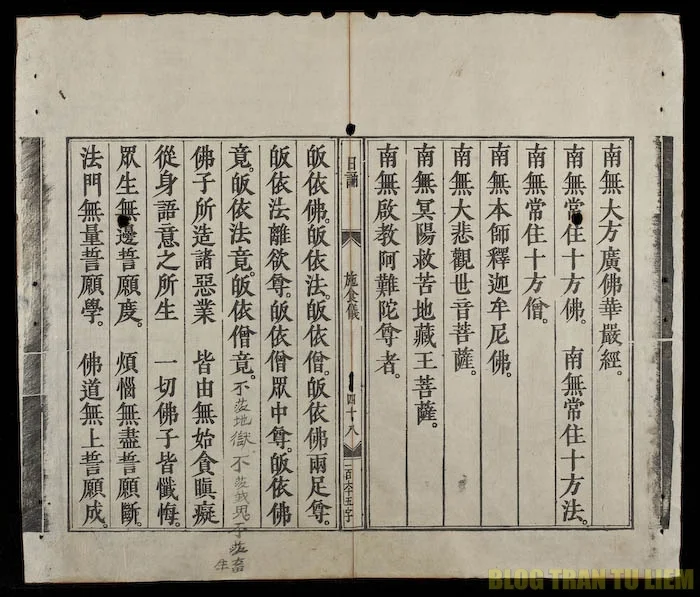 南無大方廣佛華嚴經。
南無常住十方佛。　南無常住十方法。
南無常住十方僧。
南無本師釋迦牟尼佛。
南無大悲觀世音菩薩。
南無冥陽救苦地藏王菩薩。
南無啟教阿難陀尊者。
日誦
施食儀
四十八
一百六十五字
皈依佛。皈依法。皈依僧。皈依佛兩足尊。
皈依法離欲尊。皈依僧眾中尊。皈依佛
竟。皈依法竟。皈依僧竟。不落地獄不落餓鬼不落畜
生
佛子所造諸惡業　皆由無始貪瞋癡
從身語意之所生　一切佛子皆懺悔。
眾生無邊誓願度。　煩惱無盡誓願斷。
法門無量誓願學。　佛道無上誓願成。
BLOG TRAN TU LIEM